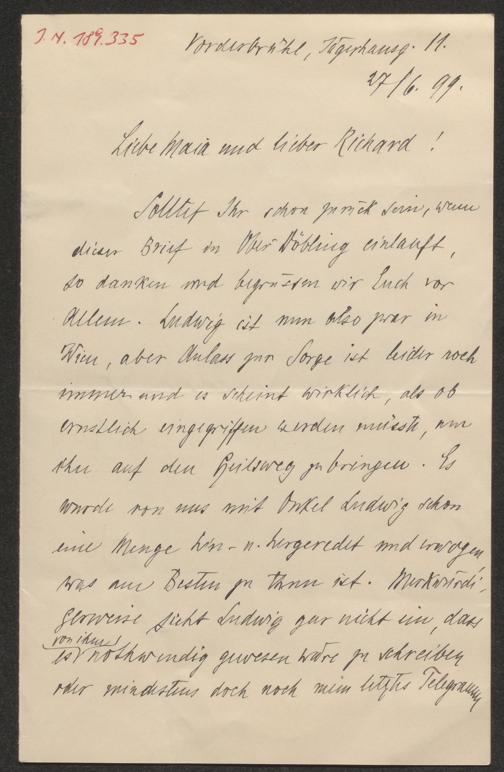 J. N. 189.335
Vorderbrühl, Jägerhausg. 11.
27/6. 99.
Liebe Maia und lieber Richard!
Solltet Ihr schon zurück sein, wenn
dieser Brief in Ober Döbling einlauft,
so danken und begrüssen wir Euch vor
Allem. Ludwig ist nun also zwar in
Wien, aber Anlass zur Sorge ist leider noch
immer und es scheint wirklich, als ob
ernstlich eingegriffen werden müsste, um
ihn auf den Heilsweg zu bringen. Es
wurde von uns mit Onkel Ludwig schon
eine Menge hin- u. hergeredet und erwogen
was am Besten zu thun ist. Merkwürdi-
gerweise sieht Ludwig gar nicht ein, dass
von ihm
es nothwendig gewesen wäre zu schreiben
oder mindestens doch noch mein letztes Telegramm